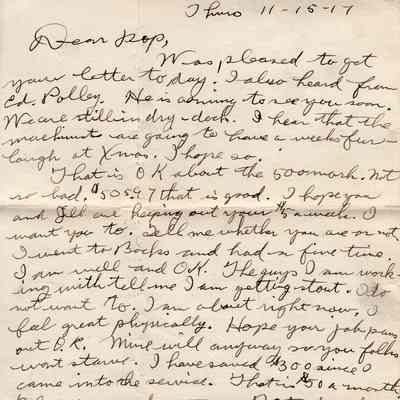 Thurs 11-15-17
Dear Pop,
Was pleased to get
your letter to day. I also heard from
Ed. Polley. He is coming to see you soon.
We are still in dry-dock. I hear that the
machinist are going to have a weeks fur-
lough at Xmas. I hope so.
That is O K about the 500 mark. Not
so bad. $505.97 that is good. I hope you
and are keeping out your $5 a week. I
want you to. Tell me whether you are or not.
I went to and had a fine time.
I am well and O.K. The guys I am work-
ing with tell me I am getting stout. I do
not want to. I am about right now, I
feel great physically. Hope your job pans
out O.K. Mine will anyway so you folks
wont starve. I have saved $300 since I
came into the service. That is $50 a month.